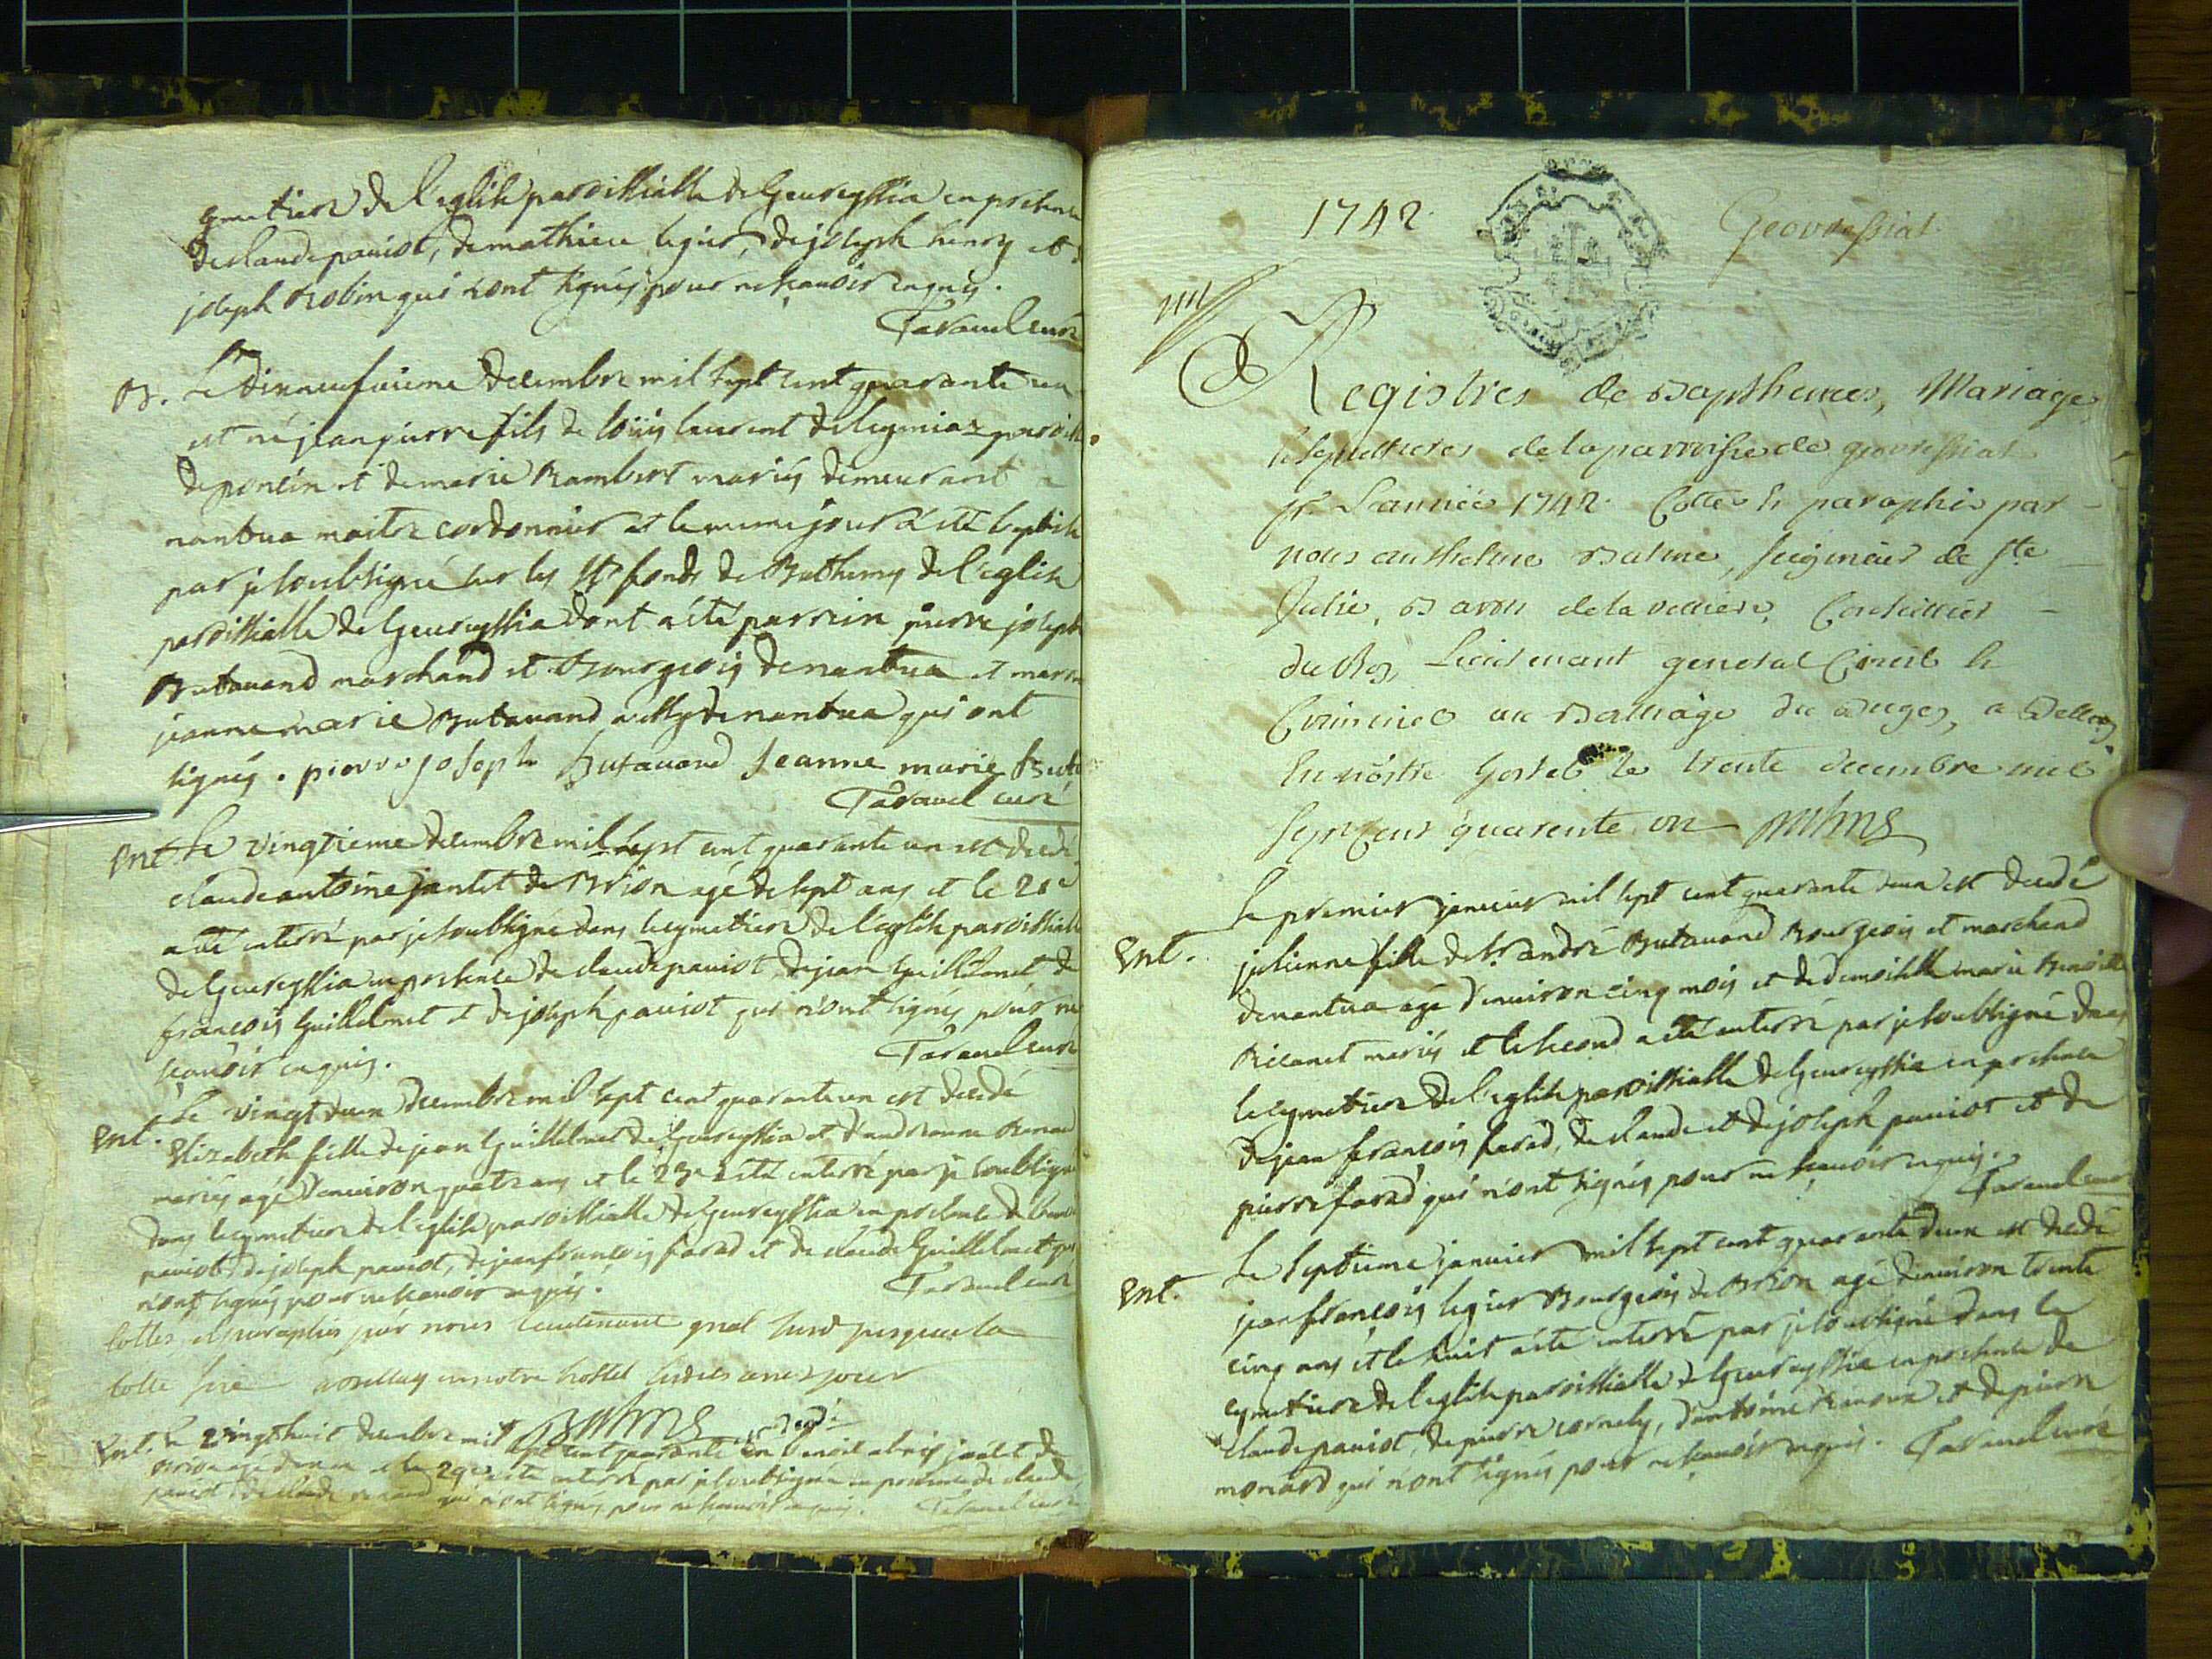 cymetiere de l'eglise paroissialle de Geureyssia en presence
de claude paviot, de mathieu legier, de joseph henry et
joseph Robin qui n'ont signés pour ne sçavoir enquis.
Taravel curé
B. Le dixneufvieme decembre mil sept cent quarante un
est né jean pierre fils de loüis laurent de
de poncin et de marie Rambert mariés demeurant a
nantua maitre cordonnier et le meme jour a été baptisé
par je soubsigné sur les Sts fonds de Bathemes de l'eglise
paroissialle de Geureyssia dont a été parrein pierre joseph
Butavand marchand et Bourgeois de nantua et marr
jeanne marie Butavand de nantua qui ont
signés. pierre joseph Butavand Jeanne marie Buta
Taravel curé
Ent. Le vingtieme decembre mil sept cent quarante un est decedé
claude antoine jantet de Brion agé de sept ans et le 21e
a été enterré par je soubsigné dans le cymetiere de l'eglise paroissialle
de Geureyssia en presence de claude paviot, de jean Guillelmet de
francois Guillelmet et de joseph paviot qui n'ont signés pour ne
sçavoir enquis.
Taravel curé
Ent. Le vingt deux decembre mil sept cent quarante un est decedé
Elizabeth fille de jean Guillelmet de Geureyssia et d'andreanne
mariés agé d'environ quatre ans et le 23e a été enterré par je soubsigné
dans le cymetiere de l'eglise paroissialle de Geureyssia en presence de claude
paviot, de joseph paviot, de jean francois farad et de claude Guillelmet qui
n'ont signés pour ne sçavoir enquis.
Taravel curé
Cottes et paraphés par nous lieutenant gnal jusques la
cotte en notre hostel jour
Balme
Ent. Le vingt huit decembre mil sept cent quarante un decedé
Brion et le 29e a été enterré par je soubsigné en presence de claude
paviot, de claude qui n'ont signés pour ne sçavoir enquis. Taravel curé
1742 Geovressiat
Registres de Bapthemes, Mariages
& Sepultures de la parroisse de geovressiat
pr L'année 1742. Cottés & paraphés par
nous anthelme Balme, seigneur de Ste
Julie, Baron de la velliere, Conseiller
du Roy, Lieutenant general Civil &
Criminel au Bailliage du Bugey, a Belley
En nostre hostel le trente decembre mil
sept cent quarente un Balme
Ent. Le premier janvier mil sept cent quarante deux est decedé
julienne fille de Sr. andré Butavand Bourgeois et marchand
de nantua agé d'environ cinq mois et de demoiselle marie Benoite
mariés et le second a été enterré par je soubsigné dans
le cymetiere de l'eglise paroissialle de Geureyssia en presence
de jean francois farad, de claude et de joseph paviot et de
pierre farad qui n'ont signés pour ne sçavoir enquis.
Taravel curé
Ent. Le septieme janvier mil sept cent quarante deux est decedé
jean francois legier Bourgeois de Brion agé d'environ trente
cinq ans et le huit a été enterré par je soubsigné dans le
cymetiere de l'eglise paroissialle de Geureyssia en presence de
claude paviot, de pierre cornely, d'antoine et de pierre
monard qui n'ont signés pour ne sçavoir enquis. Taravel curé